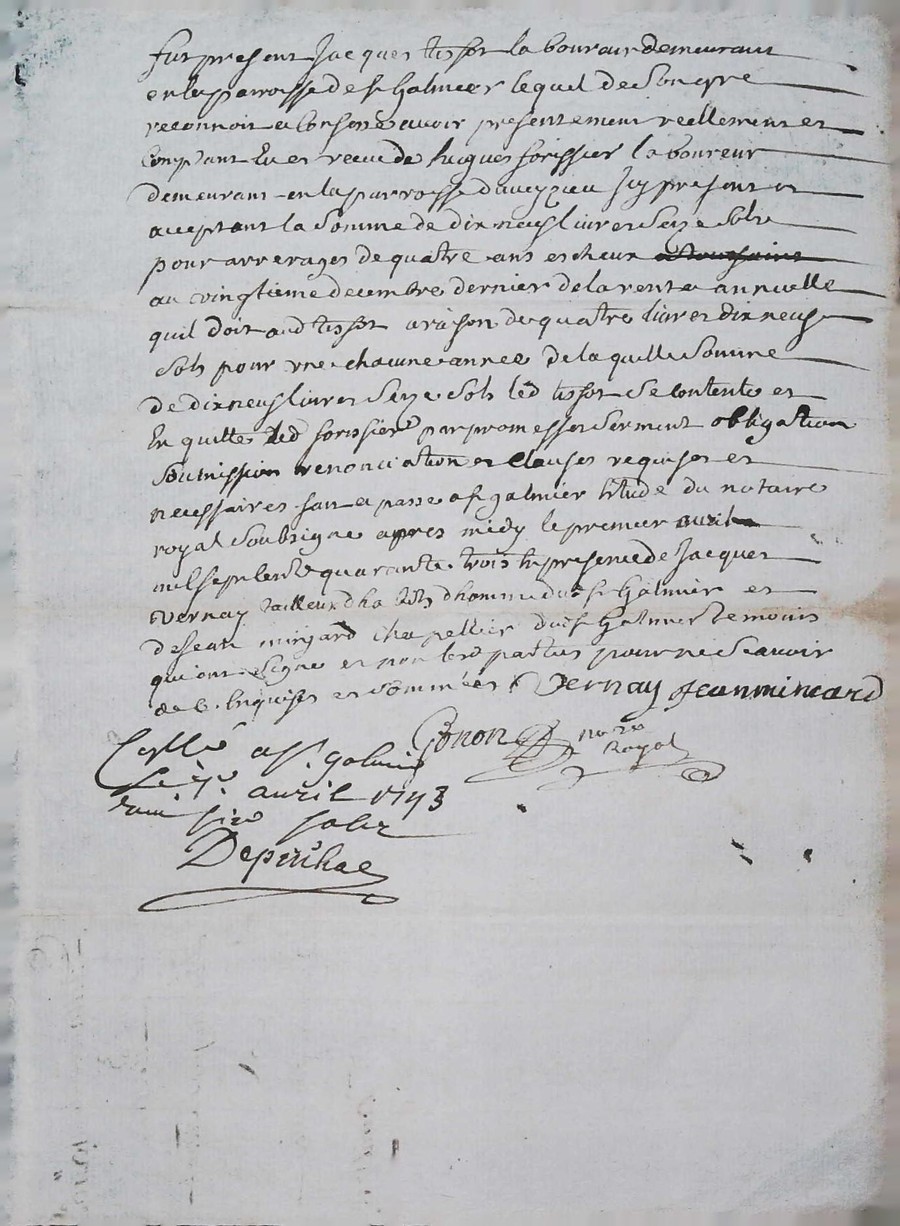 fut present Jacques tissot laboureur demeurant
en la parroisse de st Galmier lequel de son gre
reconnoit a confesse avoir presentement reellement et
comptant Eu et receu de Jacques forissier laboureur
demeurant en la parroisse daveyzieu Icy present et
acceptant la somme de dixneuf livres seize sols
pour arrerages de quatre ans escheux
au vingtieme decembre dernier de la rente annuelle
quil doit aud tissot a raison de quatre livres dixneuf
sols pour vne chacune annee de laquelle somme
de dixneuf livres seize sols led tissot se contente et
En quitte led forissier par promesses serment obligation
soumission renonciation et clauses requises et
necessaires fait et passe a st galmier Estude du notaire
royal soubsigne apres midy le premier avril
mil sept cent quarante trois En presence de Jacques
vernay tailleur dhabits dhomme dud st Galmier et
de Jean mingard chapellier dud st Galmier temoins
qui ont signe et non lesd parties pour ne scavoir
de ce Enquises et sommées Vernay Jean mincard
Conon no re
Royal
Collé a st galmier
le avril 1743
six solz
Depinhac